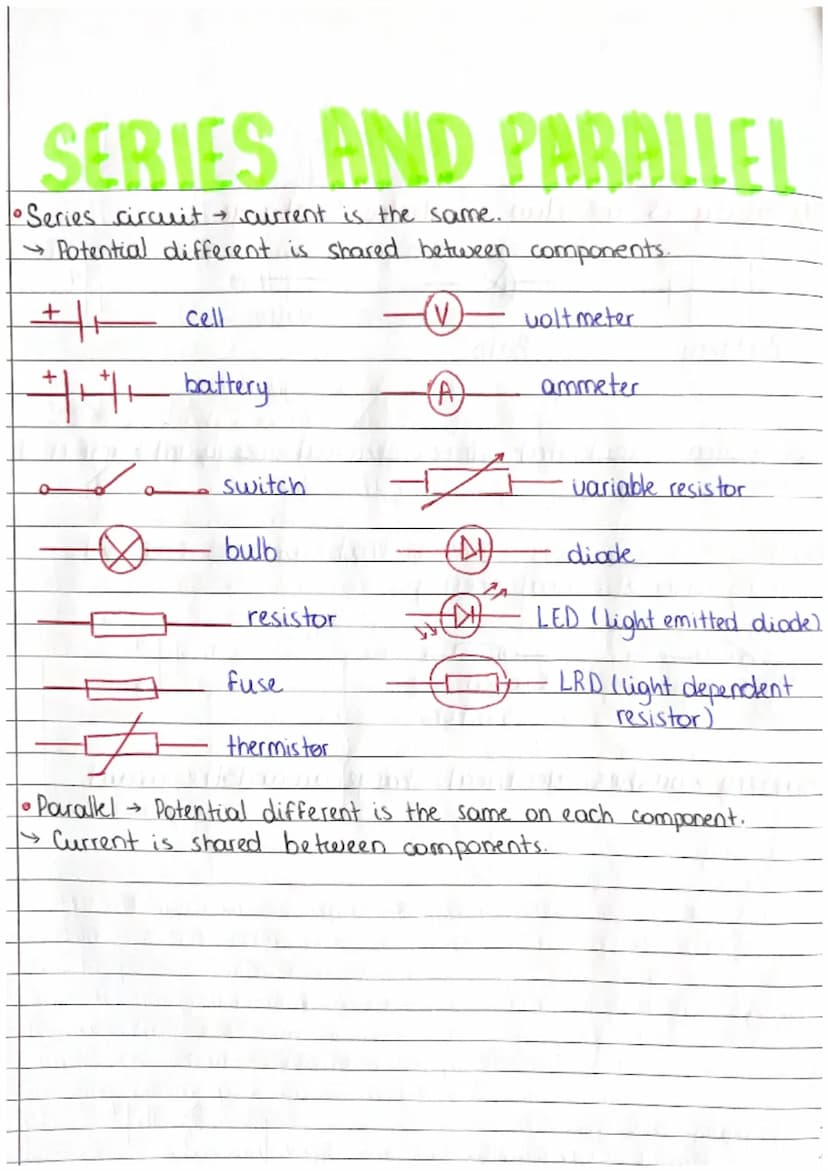 SERIES AND PARALLEL
• Series circuit → current is the same.
→ Potential different is shared between components.
+ cell V voltmeter
+ + battery A ammeter
switch variable resistor
bulb diode
resistor LED (light emitted diode)
fuse LRD (light dependent
resistor)
thermistor
• Parallel → Potential different is the same on each component.
→ Current is shared between components.